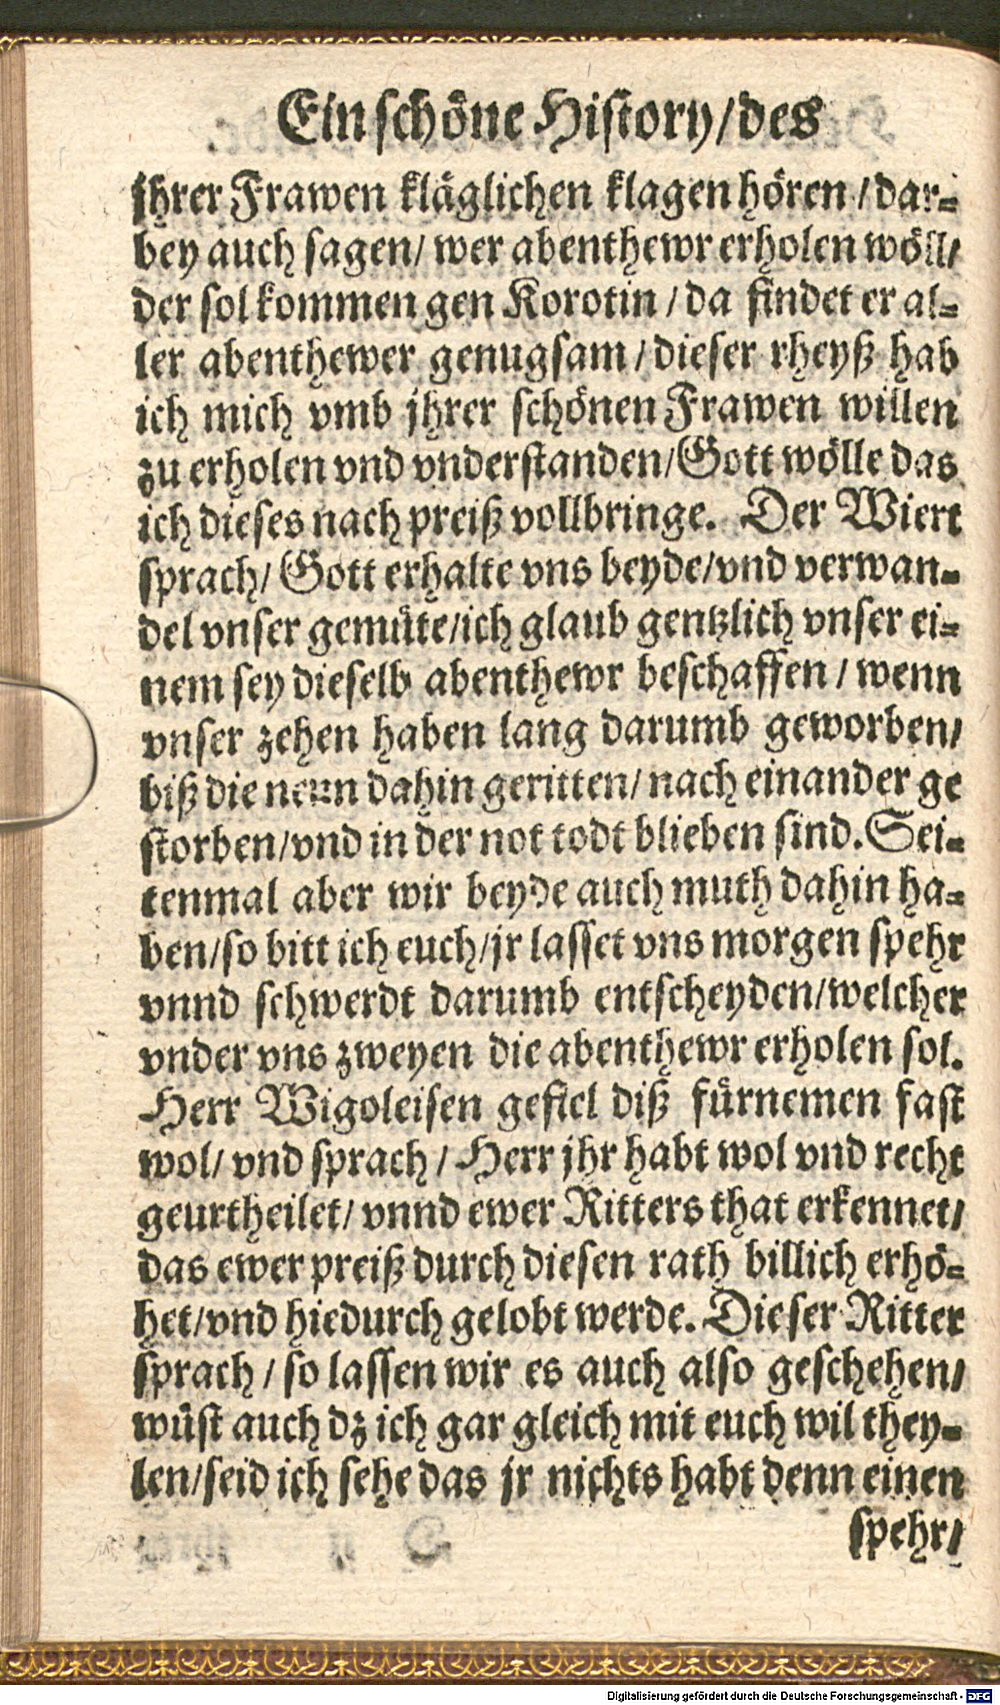 Ein schöne History/des
jhrer Frawen kläglichen klagen hören / dar-
bey auch sagen/ wer abenthewr erholen wöll/
der sol kommen gen Korotin / da findet er al-
ler abenthewer genugsam / dieser rheyß hab
ich mich vmb jhrer schönen Frawen willen
zu erholen vnd vnderstanden/Gott wölle das
ich dieses nach preiß vollbringe. Der Wiert
sprach/ Gott erhalte vns beyde/vnd verwan-
del vnser gemüte/ich glaub gentzlich vnser ei-
nem sey dieselb abenthewr beschaffen / wenn
vnser zehen haben lang darumb geworben/
biß die neun dahin geritten/ nach einander ge
storben/vnd in der not todt blieben sind. Sei-
tenmal aber wir beyde auch muth dahin ha-
ben/so bitt ich euch/jr lasset vns morgen spehr
vnnd schwerdt darumb entscheyden/welcher
vnder vns zweyen die abenthewr erholen sol.
Herr Wigoleisen gefiel diß fürnemen fast
wol/ vnd sprach / Herr jhr habt wol vnd recht
geurtheilet/ vnnd ewer Ritters that erkennet/
das ewer preiß durch diesen rath billich erhö-
het/vnd hiedurch gelobt werde. Dieser Ritter
sprach / so lassen wir es auch also geschehen/
wüst auch dz ich gar gleich mit euch wil they-
len/seid ich sehe das jr nichts habt denn einen
spehr/
Digitalisierung gefördert durch die Deutsche Forschungsgemeinschaft - DFG